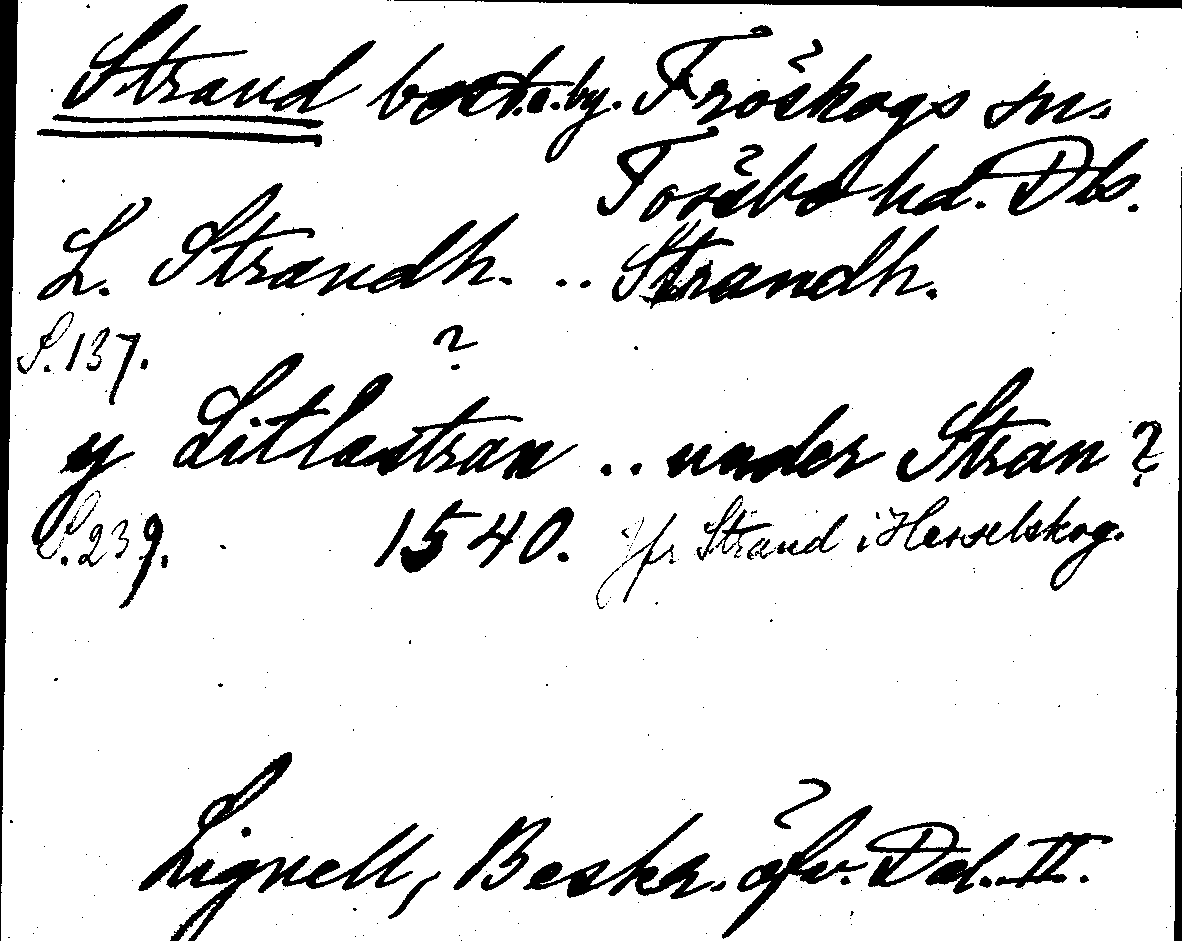 Strand by. Fröskogs sn.
Tössbo hd. Dls.
L. Strandh. .. Strandh.
S. 137. ?
y Litlastran .. under Stran?
S. 239. 1540. Jfr Strand i Hesselskog.
Lignell, Beskr. öfv. Dal. II.